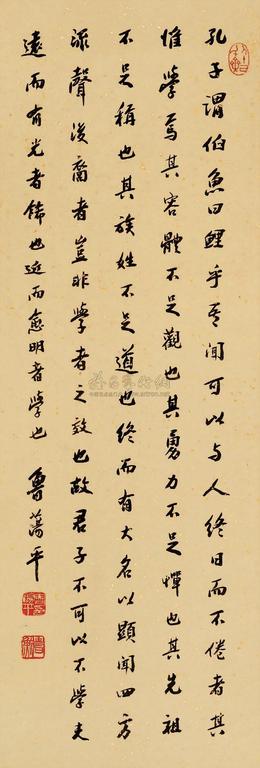 孔子謂伯魚曰鯉乎吾聞可以与人終日而不倦者其
惟學焉其容體不足觀也其勇力不足憚也其先祖
不足稱也其族姓不足道也終而有大名以顯聞四方
流聲後裔者豈非學者之效也故君子不可以不學夫
遠而有光者飾也近而愈明者學也
魯蕩平